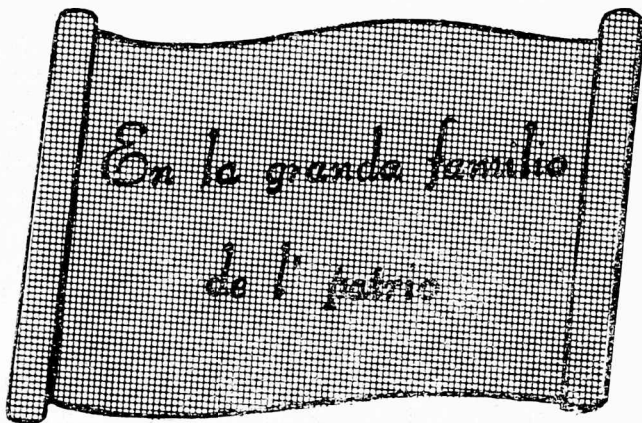 En la granda familio
de l' patrio